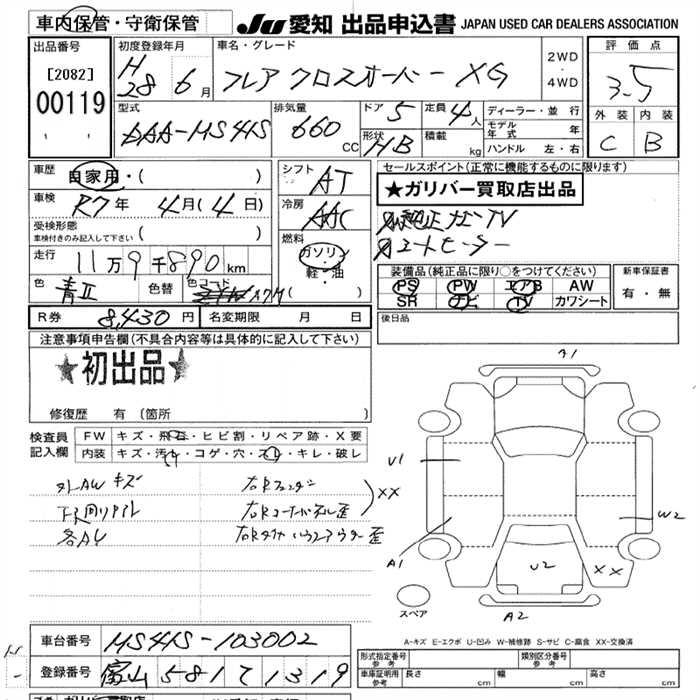 車内保管・守衛保管
JU 愛知 出品申込書 JAPAN USED CAR DEALERS ASSOCIATION
出品番号
[2082]
00119
初度登録年月
H28年 6月
車名・グレード
フレア クロスオーバー XG
2WD
・
4WD
評価点
3.5
外装 内装
C B
型式
DAA-MS41S
排気量
660 CC
ドア 5
形状 HB
定員 4人
積載 kg
ディーラー・並行
モデル年式 年
ハンドル 左・右
車歴
自家用・( )
車検
R7年 4月(4日)
受検形態
車検付きのみ記入して下さい ( )
走行
11万9千890km
色
青II
色替
色コード
シフト AT
冷房 AAC
燃料
ガソリン
・
軽・油
R券 8,430円
名変期限 月 日
セールスポイント(正常に機能するものに限ります)
★ガリバー買取店出品
シートヒーター
装備品(純正品に限り○をつけてください)
PS PW エアB AW
SR ナビ TV カワシート
新車保証書
有・無
後日品
注意事項申告欄(不具合内容等は具体的に記入して下さい)
★初出品★
修復歴 有(箇所
検査員記入欄
FW キズ・飛石・ヒビ割・リペア跡・X要
内装 キズ・汚れ・コゲ・穴・スレ・キレ・破レ
外AW キズ
各AU
右Rフェンダー
右Rコーナーパネル歪
右Rタイヤハウスアウター歪
XX
A1
U1
A1
W2
U2
XX
A2
スペア
A-キズ E-エクボ U-凹み W-補修跡 S-サビ C-腐食 XX-交換済
車台番号 MS41S-103002
登録番号 富山 581 て 1319
形式指定番号
参考
類別区分番号
参考
車庫証明用
参考
長さ cm
幅 cm
高さ cm